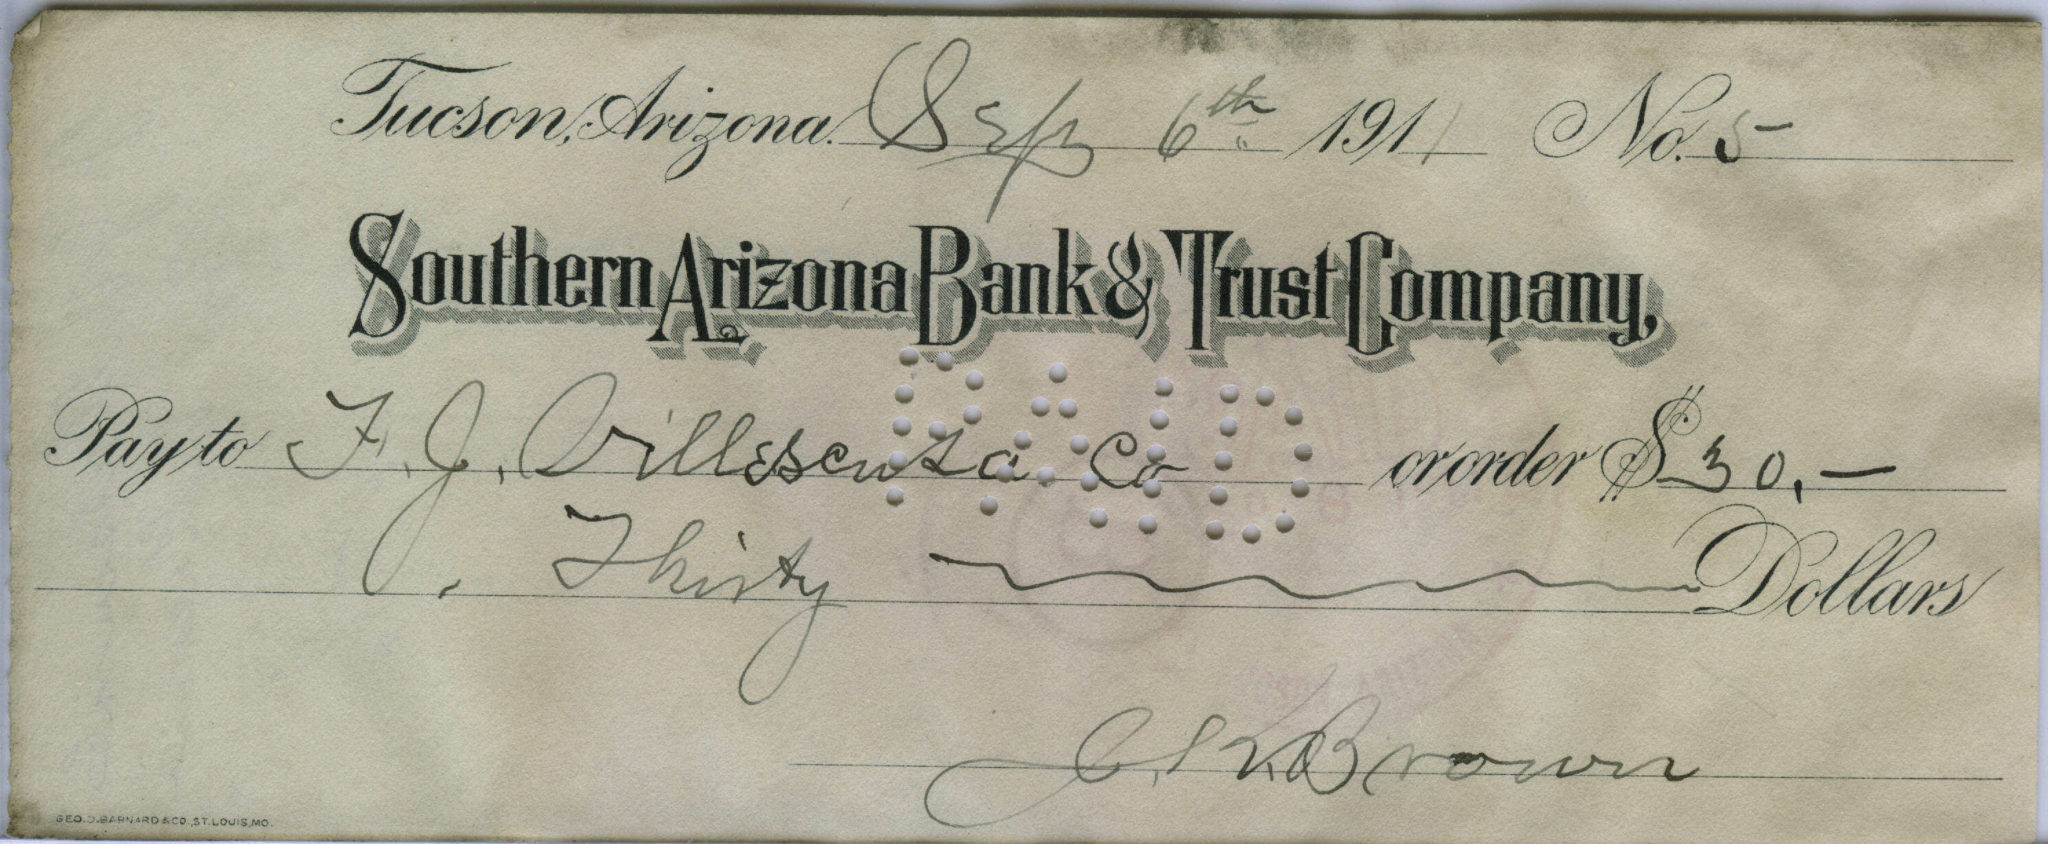 Tucson, Arizona. Sep 6th 1911 No. 5
Southern Arizona Bank & Trust Company,
Pay to F. J. Villescusa Co or order $30.—
Thirty Dollars
PAID
J. K. Brown
GEO. D. BARNARD & CO., ST. LOUIS, MO.